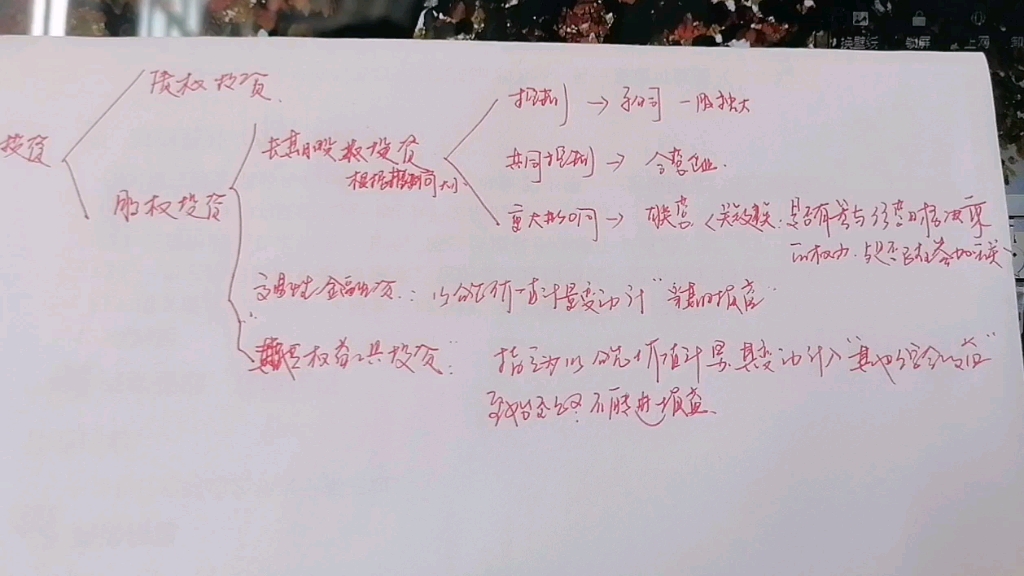 换壁纸 锁屏 上网
债权投资
投资
股权投资
长期股权投资
根据影响大小
控制 → 子公司 一股独大
共同控制 → 合营企业
重大影响 → 联营 (关键: 是否有参与经营
的权力
交易性金融资产: 以公允价值计量变动计"当期损益"
其他权益工具投资: 指定为以公允价值计量其变动计入"其他综合收益"
自始至终不能进损益